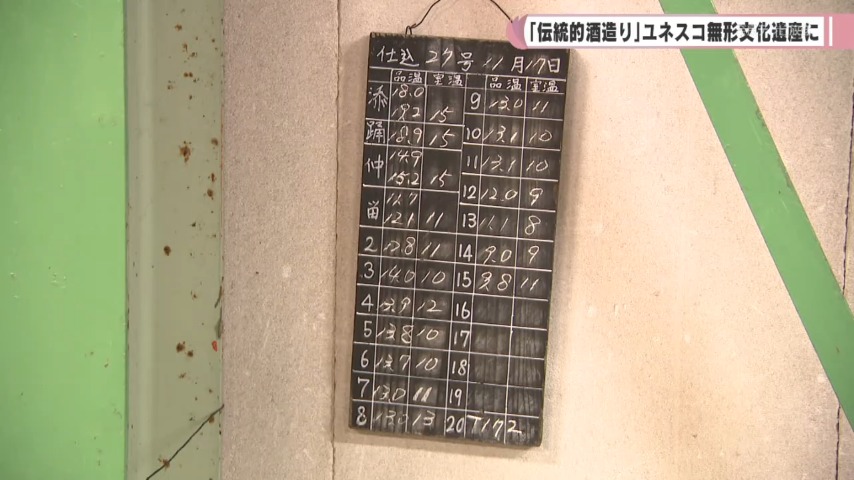 「伝統的酒造り」ユネスコ無形文化遺産に
仕込 27号 11月17日
品温 室温 品温 室温
添 18.0
19.2 15
踊 18.9 15
仲 14.9
15.2 15
留 11.7
12.1 11
2 12.8 11
3 14.0 10
4 13.9 12
5 13.8 10
6 13.7 10
7 13.0 11
8 13.0 13
9 13.0 11
10 13.1 10
11 13.1 10
12 12.0 9
13 11.1 8
14 9.0 9
15 9.8 11
16
17
18
19
20